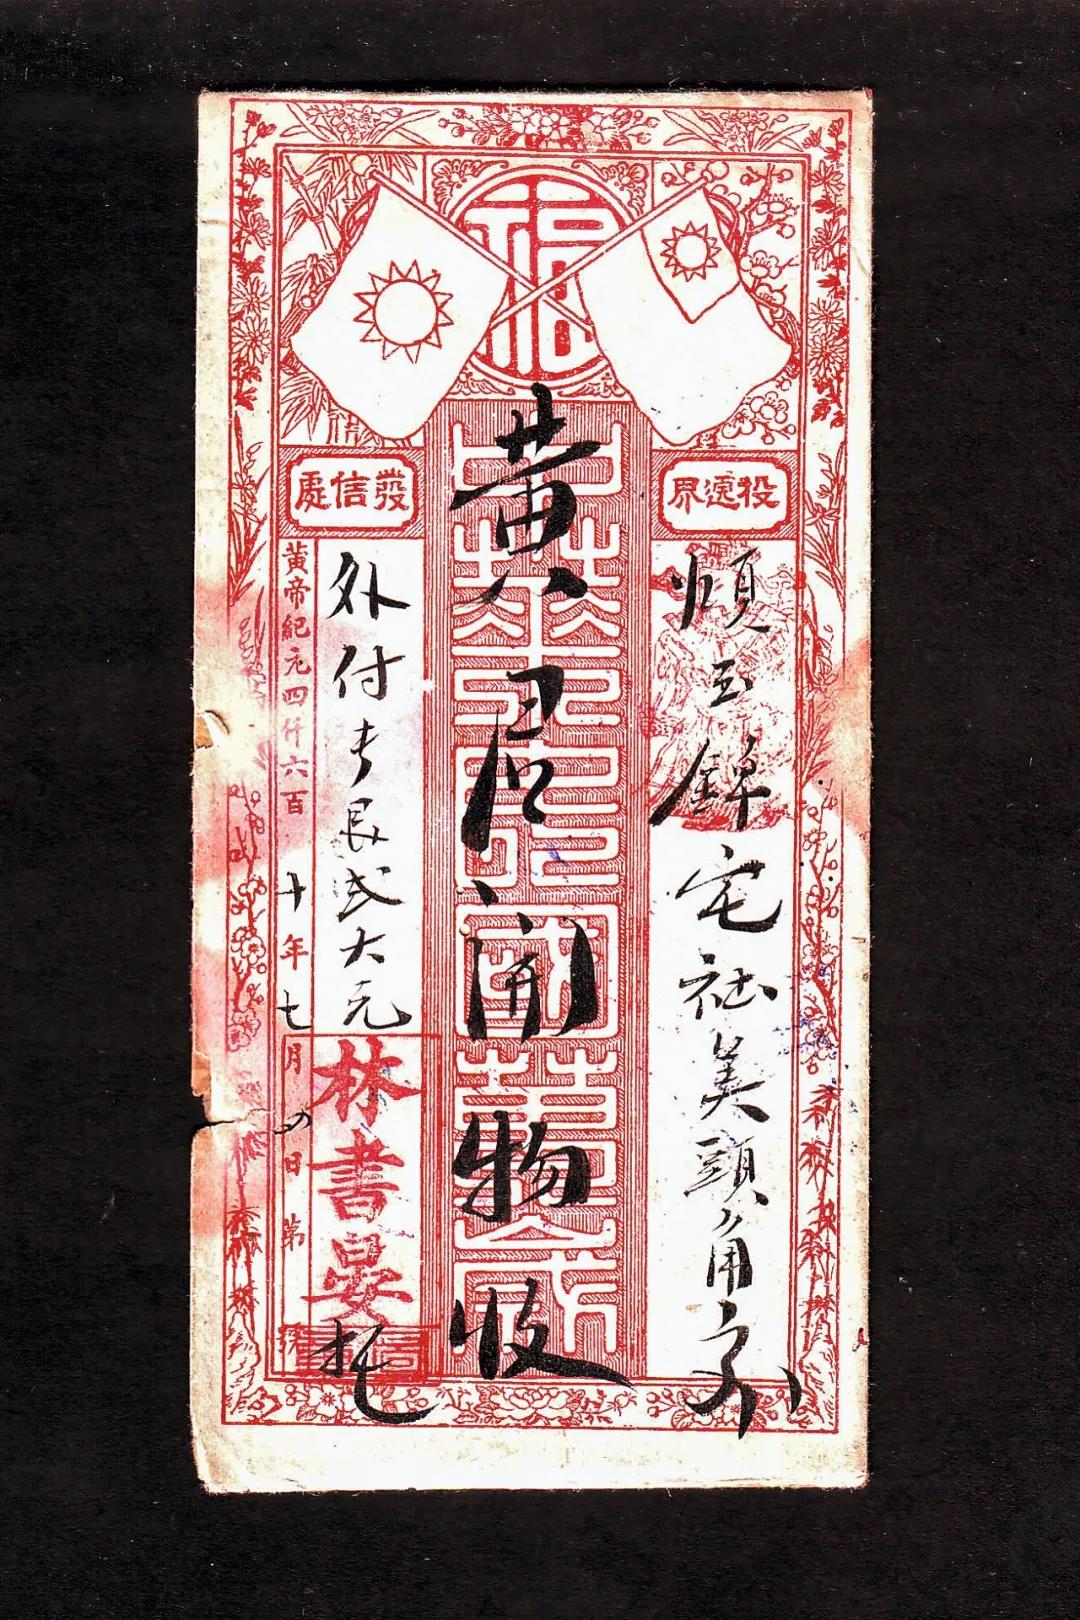 福
投遞界
煩至錦宅社美頭角交
中華民國萬歲
黃君開物收
發信處
外付去艮弍大元
林書晏托
黃帝紀元四仟六百十年七月四日第 號